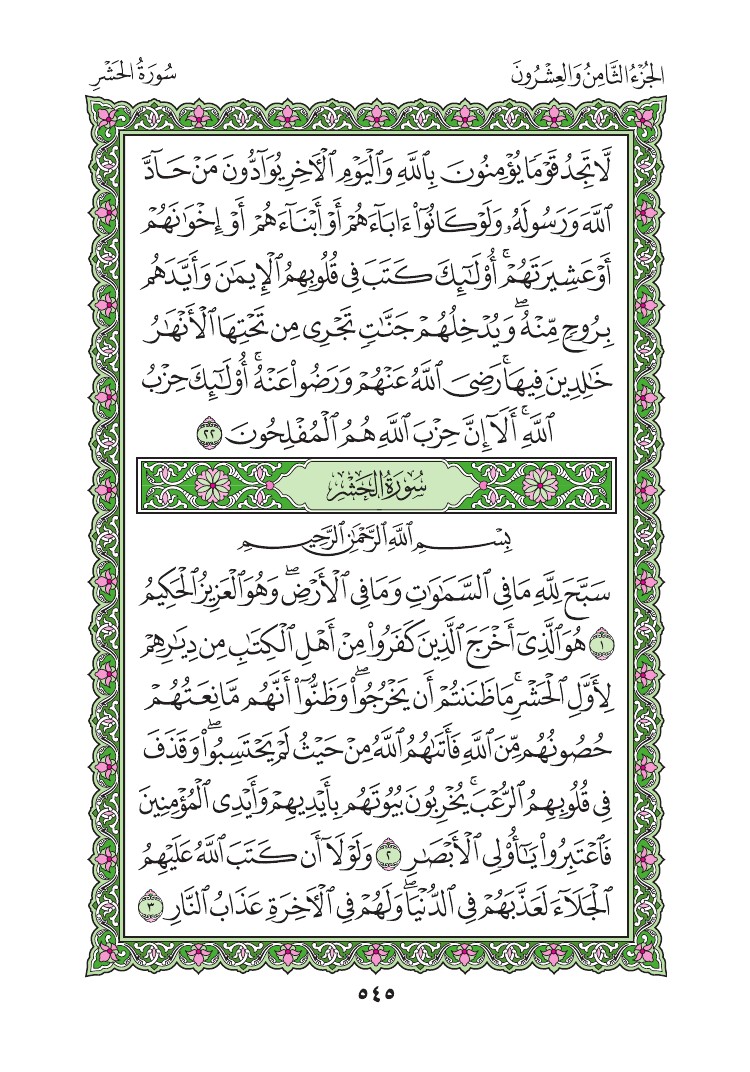 الجُزْءُ الثَّامِنُ وَالعِشْرُونَ
سُورَةُ الحَشْرِ
لَّا تَجِدُ قَوْمًا يُؤْمِنُونَ بِٱللَّهِ وَٱلْيَوْمِ ٱلْأٓخِرِ يُوَآدُّونَ مَنْ حَآدَّ
ٱللَّهَ وَرَسُولَهُۥ وَلَوْ كَانُوٓا۟ ءَابَآءَهُمْ أَوْ أَبْنَآءَهُمْ أَوْ إِخْوَٰنَهُمْ
أَوْ عَشِيرَتَهُمْ ۚ أُو۟لَٰٓئِكَ كَتَبَ فِى قُلُوبِهِمُ ٱلْإِيمَٰنَ وَأَيَّدَهُم
بِرُوحٍ مِّنْهُ ۖ وَيُدْخِلُهُمْ جَنَّٰتٍ تَجْرِى مِن تَحْتِهَا ٱلْأَنْهَٰرُ
خَٰلِدِينَ فِيهَا ۚ رَضِىَ ٱللَّهُ عَنْهُمْ وَرَضُوا۟ عَنْهُ ۚ أُو۟لَٰٓئِكَ حِزْبُ
ٱللَّهِ ۚ أَلَآ إِنَّ حِزْبَ ٱللَّهِ هُمُ ٱلْمُفْلِحُونَ ٢٢
سُورَةُ الحَشْرِ
بِسْمِ ٱللَّهِ ٱلرَّحْمَٰنِ ٱلرَّحِيمِ
سَبَّحَ لِلَّهِ مَا فِى ٱلسَّمَٰوَٰتِ وَمَا فِى ٱلْأَرْضِ ۖ وَهُوَ ٱلْعَزِيزُ ٱلْحَكِيمُ
١ هُوَ ٱلَّذِىٓ أَخْرَجَ ٱلَّذِينَ كَفَرُوا۟ مِنْ أَهْلِ ٱلْكِتَٰبِ مِن دِيَٰرِهِمْ
لِأَوَّلِ ٱلْحَشْرِ ۚ مَا ظَنَنتُمْ أَن يَخْرُجُوا۟ ۖ وَظَنُّوٓا۟ أَنَّهُم مَّانِعَتُهُمْ
حُصُونُهُم مِّنَ ٱللَّهِ فَأَتَىٰهُمُ ٱللَّهُ مِنْ حَيْثُ لَمْ يَحْتَسِبُوا۟ ۖ وَقَذَفَ
فِى قُلُوبِهِمُ ٱلرُّعْبَ ۚ يُخْرِبُونَ بُيُوتَهُم بِأَيْدِيهِمْ وَأَيْدِى ٱلْمُؤْمِنِينَ
فَٱعْتَبِرُوا۟ يَٰٓأُو۟لِى ٱلْأَبْصَٰرِ ٢ وَلَوْلَآ أَن كَتَبَ ٱللَّهُ عَلَيْهِمُ
ٱلْجَلَآءَ لَعَذَّبَهُمْ فِى ٱلدُّنْيَا ۖ وَلَهُمْ فِى ٱلْأٓخِرَةِ عَذَابُ ٱلنَّارِ ٣
٥٤٥